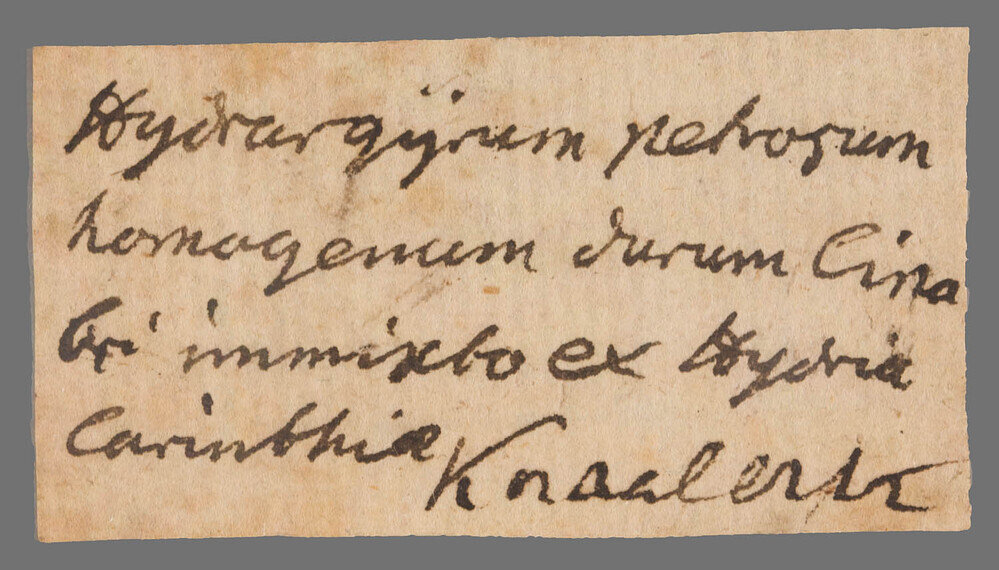 Hydrargÿrum petrosum
homogenum durum Cina
bri immixto ex Hydria
Carinthiæ